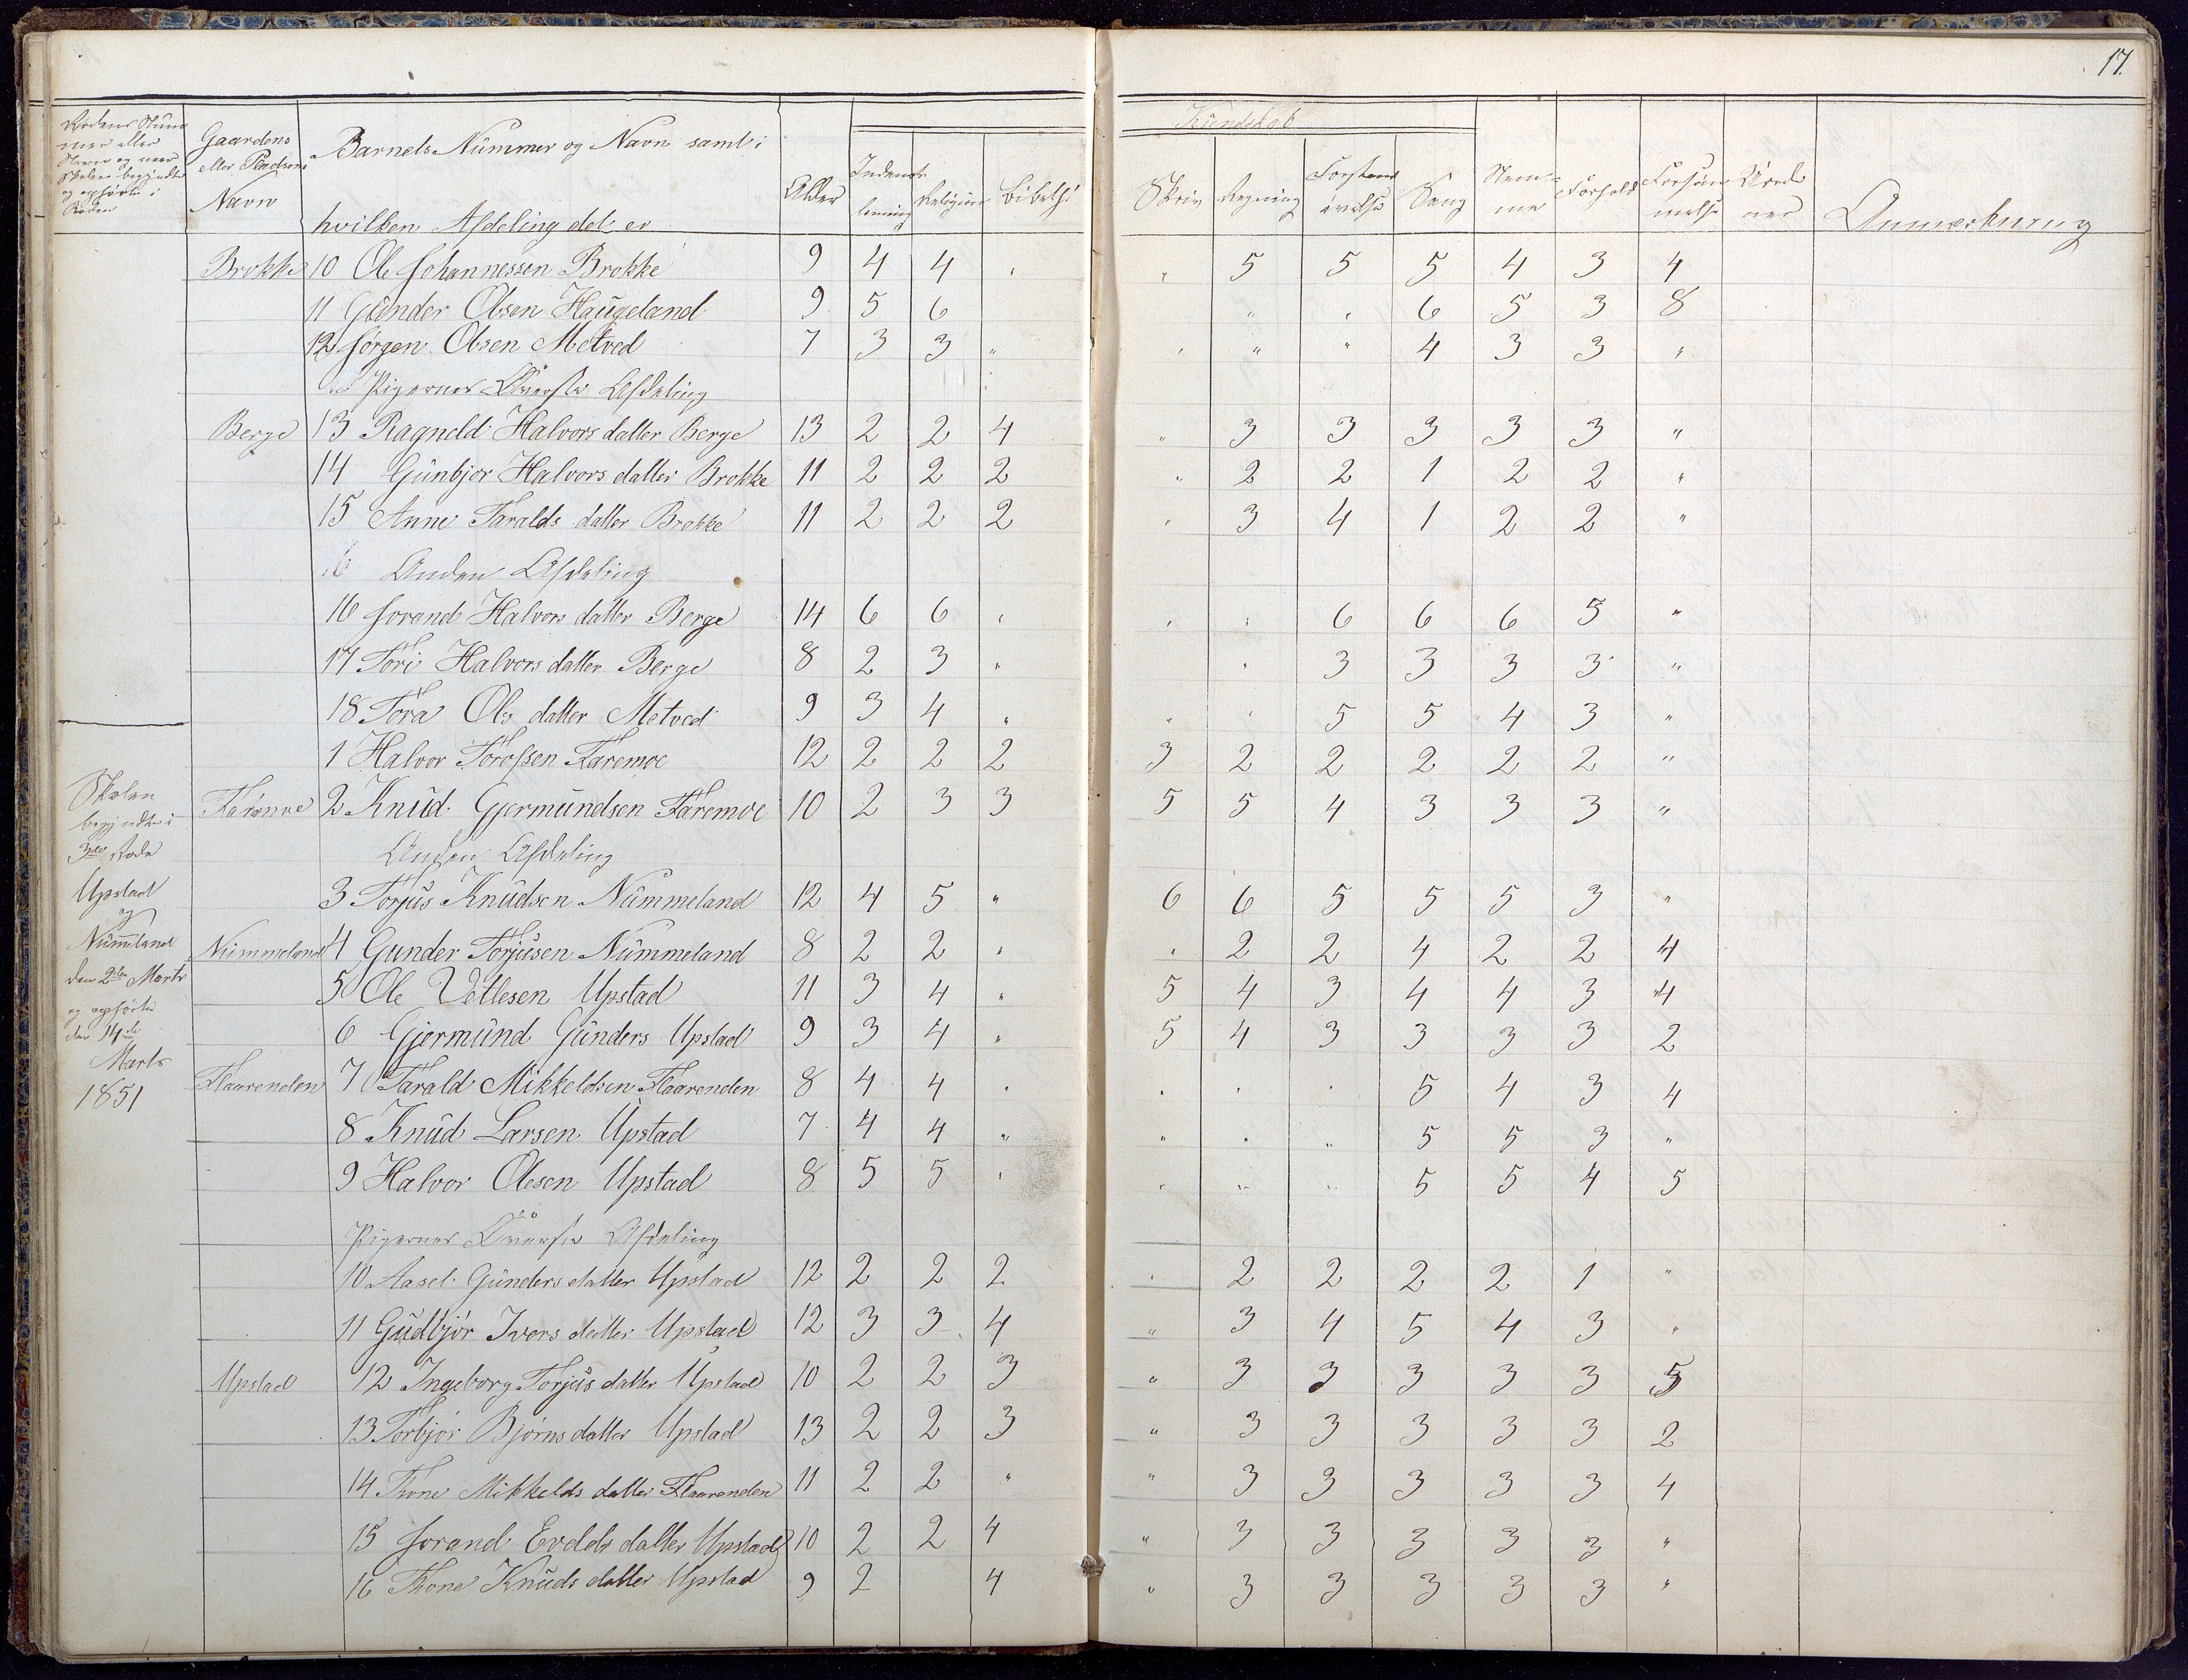 17.
Rodens Num
mer eller
Navn og naar
Skolen begyndte
og ophörte i
Roden
Gaardens
eller Pladsens
Navn
Barnets Nummer og Navn samt i
hvilken Afdeling det er
Alder
Indenads
læsning
Religion
Bibelhi
Kundskab
Skriv
Regning
Forstands
övelse
Sang
Nem=
me
Forhold
Forsöm
melse
Anmærkning
Brokke 10 Ole Johannessen Brokke 9 4 4 " " 5 5 5 4 3 4
11 Gunder Olsen Haugeland 9 5 6 " " 6 5 3 8
12 Jörgen Olsen Metved 7 3 3 " " " " 4 3 3 "
Pigernes Överste Afdeling
Berge 13 Ragneld Halvors datter Berge 13 2 2 4 " 3 3 3 3 3 "
14 Gunbjor Halvors datter Brokke 11 2 2 2 " 2 2 1 2 2 "
15 Anne Taralds datter Brokke 11 2 2 2 " 3 4 1 2 2 "
16 Anden Afdeling
16 Jorand Halvors datter Berge 14 6 6 " " " 6 6 6 5 "
17 Tori Halvors datter Berge 8 2 3 " " 3 3 3 3 "
18 Tora Ols datter Metved 9 3 4 " " " 5 5 4 3 "
1 Halvor Torossen Faremoe 12 2 2 2 3 2 2 2 2 2 "
Faremoe 2 Knud Gjermundsen Faremoe 10 2 3 3 5 5 4 3 3 3 "
Anden Afdeling
3 Torjus Knudsen Nummeland 12 4 5 " 6 6 5 5 5 3 "
Nummeland 4 Gunder Torjusen Nummeland 8 2 2 " " 2 2 4 2 2 4
5 Ole Vetlesen Upstad 11 3 4 " 5 4 3 4 4 3 4
6 Gjermund Gunders Upstad 9 3 4 " 5 4 3 3 3 3 2
Flaarenden 7 Tarald Mikkeldsen Flaarenden 8 4 4 " " " " 5 4 3 4
8 Knud Larsen Upstad 7 4 4 " " " " 5 5 3 "
9 Halvor Olesen Upstad 8 5 5 " " " " 5 5 4 5
Pigernes Överste Afdeling
10 Aasel Gunders datter Upstad 12 2 2 2 " 2 2 2 2 1 "
11 Gudbjör Ivers datter Upstad 12 3 3 4 " 3 4 5 4 3 "
Upstad 12 Ingeborg Torjus datter Upstad 10 2 2 3 " 3 3 3 3 3 5
13 Torbjör Björns datter Upstad 13 2 2 3 " 3 3 3 3 3 2
14 Thone Mikkelds datter Flaarenden 11 2 2 " " 3 3 3 3 3 4
15 Jorand Evelds datter Upstad 10 2 2 4 " 3 3 3 3 3 "
16 Thone Knuds datter Upstad 9 2 4 " 3 3 3 3 3 "
Skolen
begyndte i
3die Rode
Upstad
og
Nummeland
den 2den Marts
og ophörte
den 14de
Marts
1851